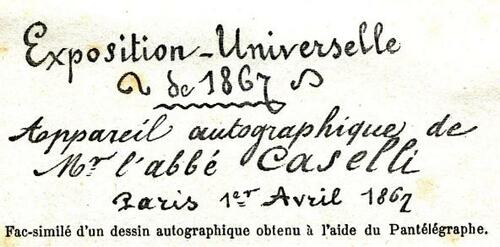 Exposition-Universelle
de 1867
Appareil autographique de
Mr l'abbé Caselli
Paris 1er Avril 1867
Fac-similé d'un dessin autographique obtenu à l'aide du Pantélégraphe.